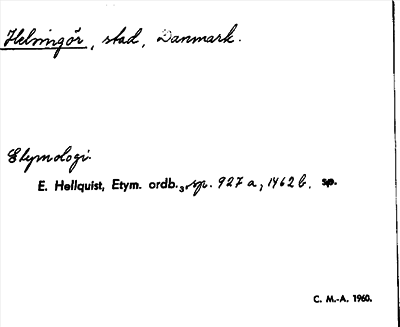 Helsingör, stad, Danmark.
Etymologi.
E. Hellquist, Etym. ordb.3, sp. 927 a, 1462 b. sp.
C. M.-A. 1960.